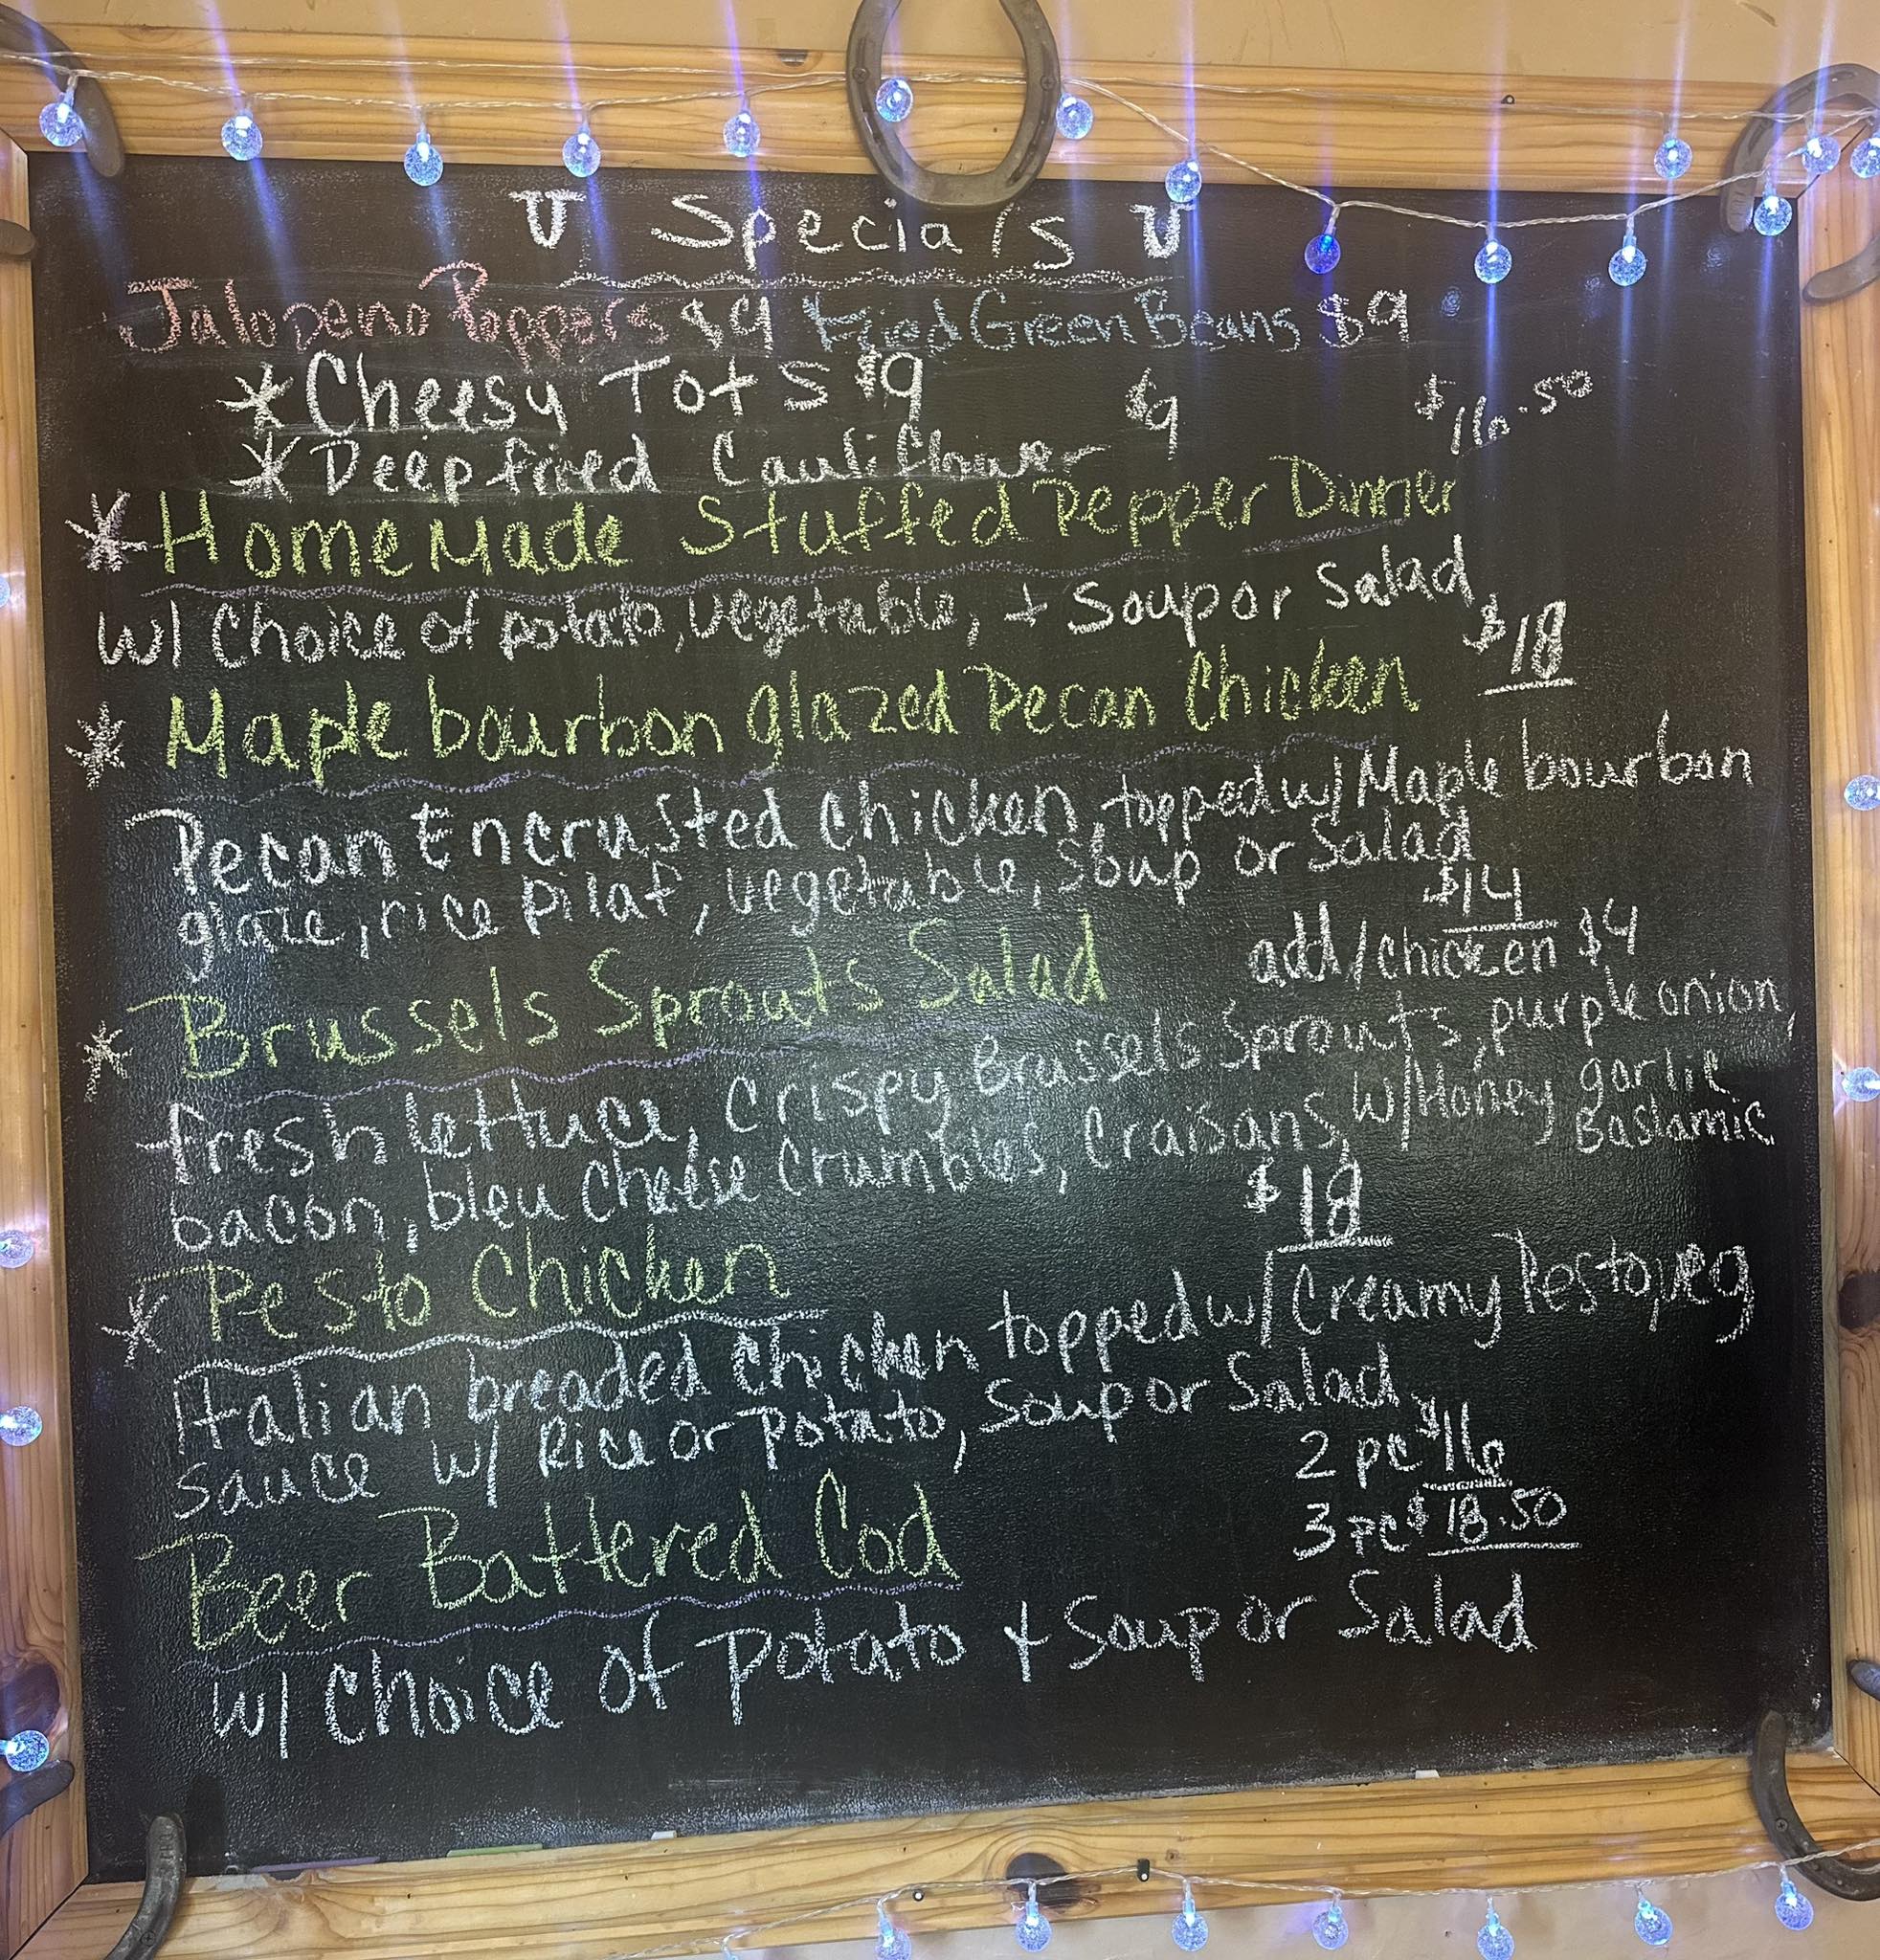 Specials
Jalopeno Poppers $9 Fried Green Beans $9
*Cheesy Tots $9
*Deep fried Cauliflower $9
$16.50
*HomeMade Stuffed Pepper Dinner
w/ Choice of potato, vegetable, + Soup or Salad
$18
* Maple bourbon glazed Pecan Chicken
Pecan Encrusted Chicken, topped w/ Maple bourbon
glaze, rice pilaf, vegetable, soup or Salad
$14
add/chicken $4
* Brussels Sprouts Salad
fresh lettuce, Crispy Brussels Sprouts, purple onion,
bacon, bleu cheese Crumbles, Craisans, w/ Honey garlic
Baslamic
$18
* Pesto Chicken
Italian breaded Chicken topped w/ Creamy Pesto, veg
sauce w/ Rice or potato, Soup or Salad
2 pc $16
3 pc $18.50
Beer Battered Cod
w/ Choice of Potato + Soup or Salad